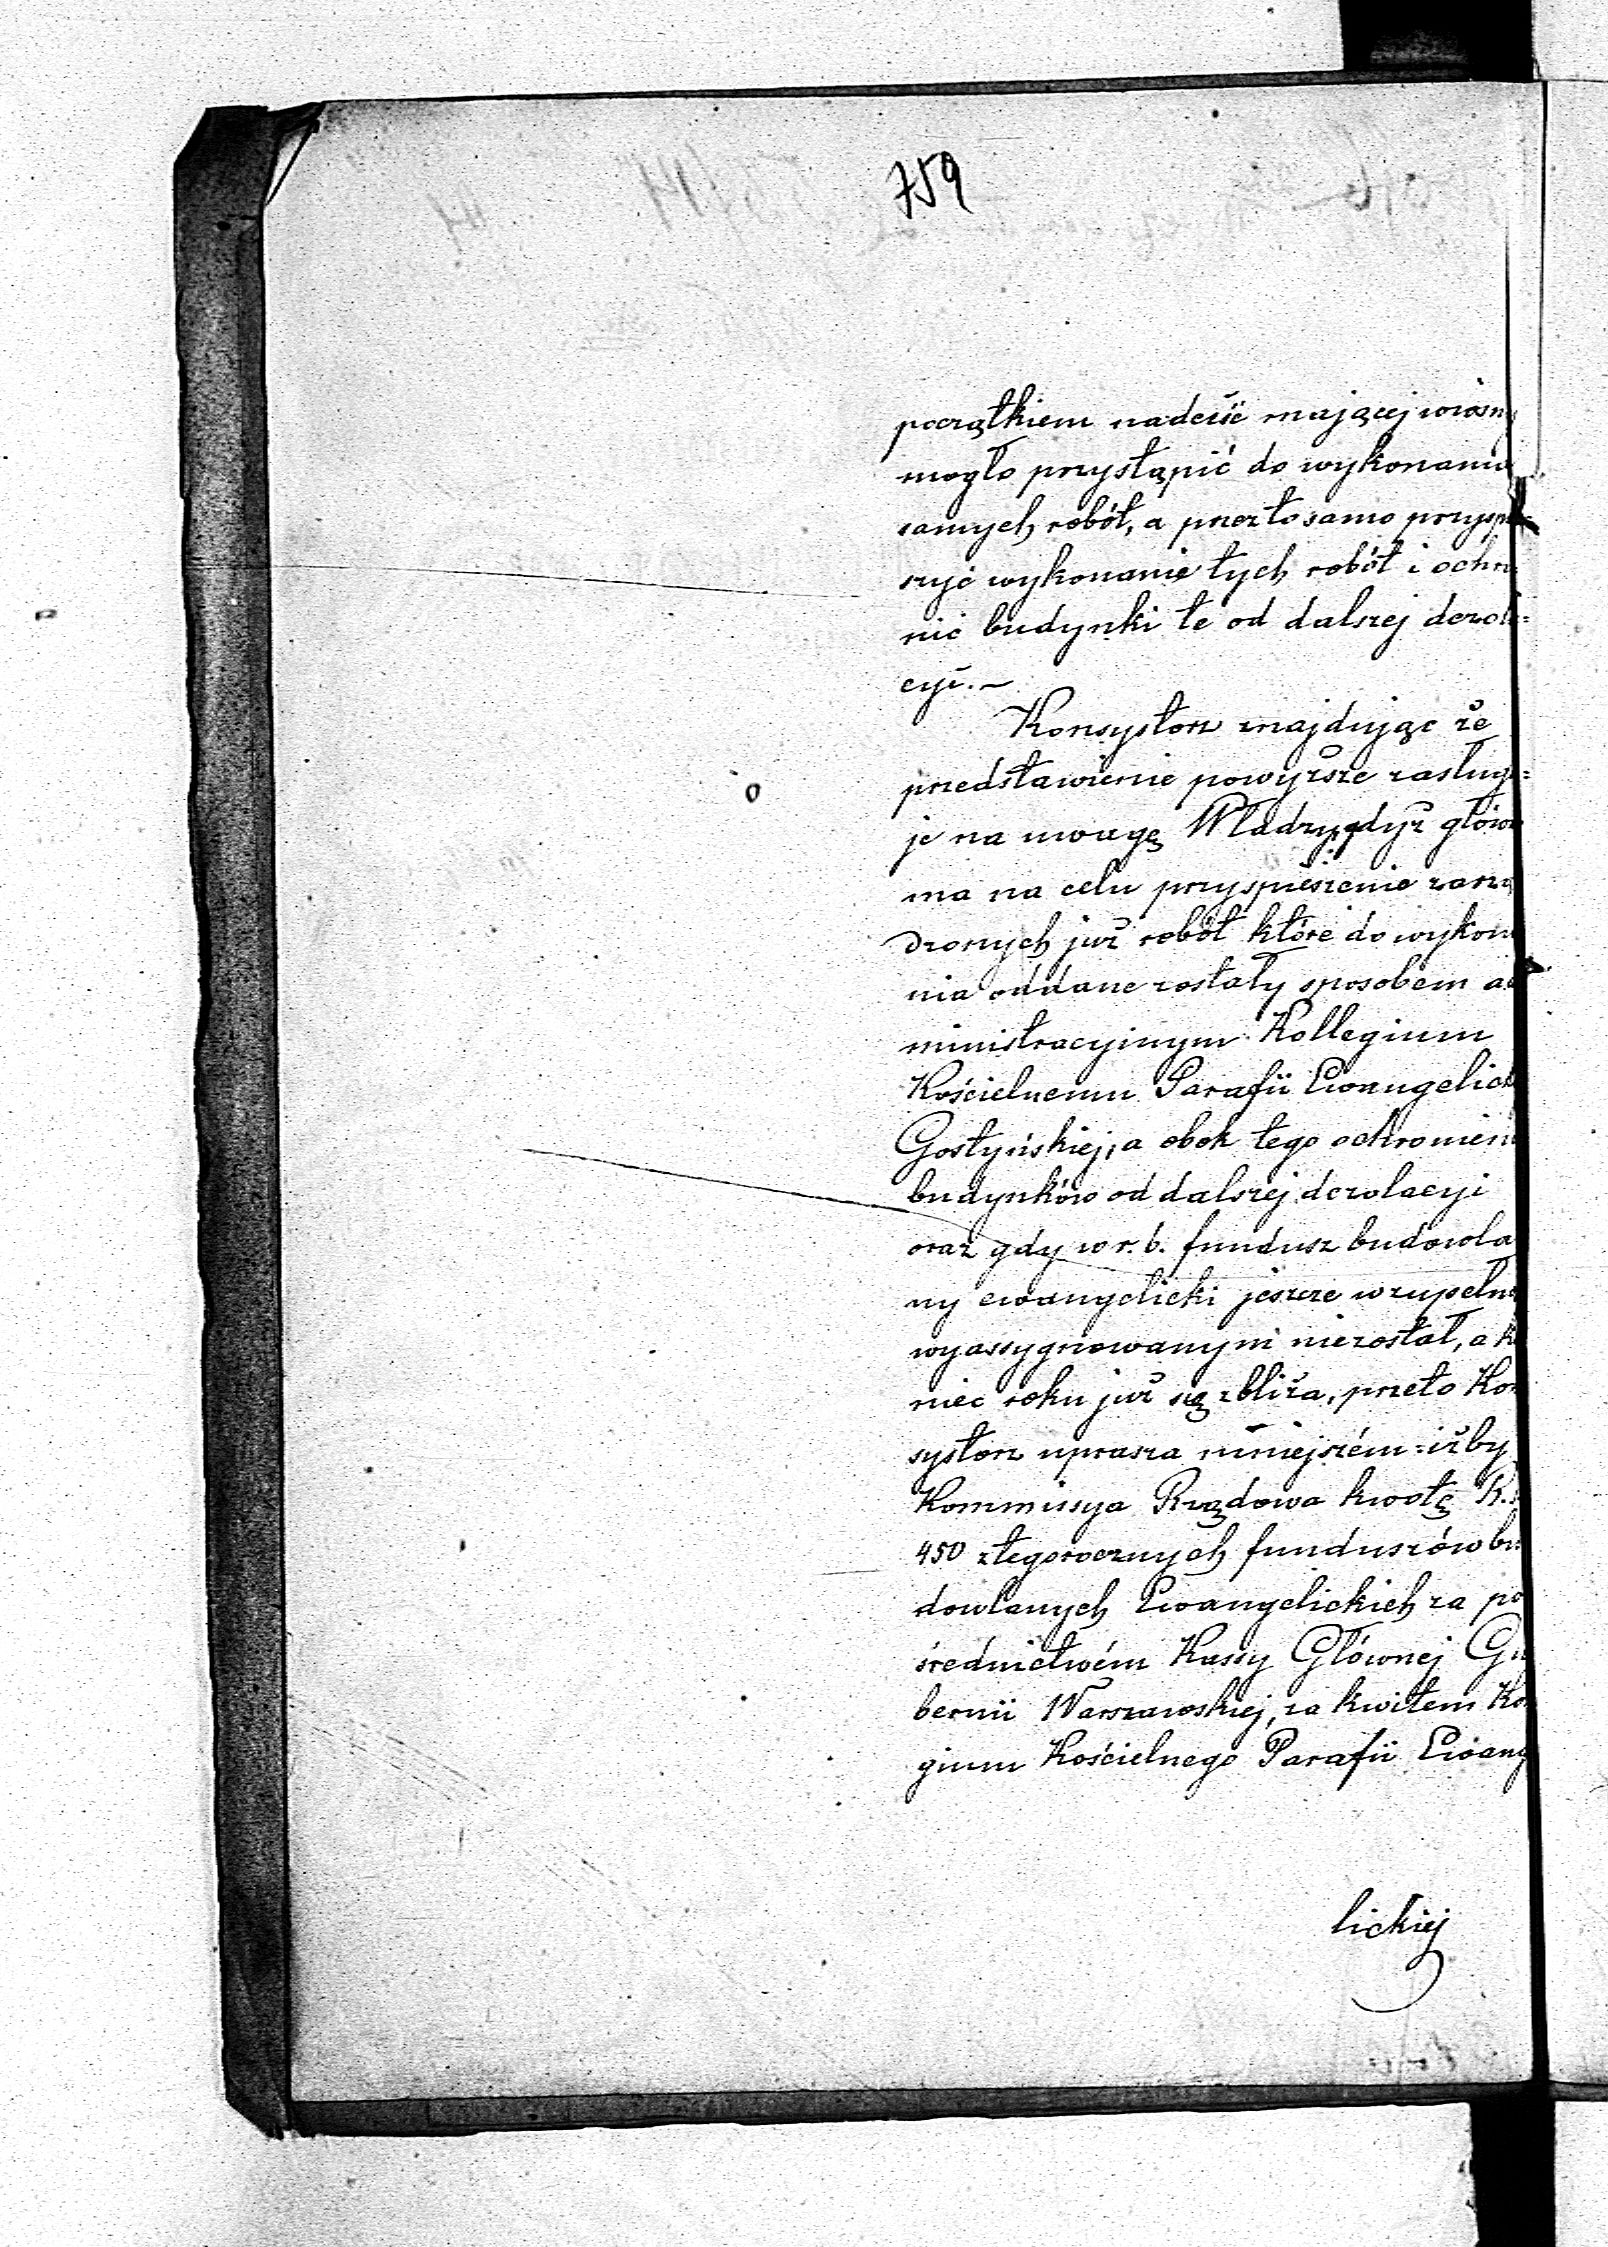 759
początkiem nadejść mającej wiosny
mogło przystąpić do wykonania
samych robót, a przez to samo przyspie=
szyć wykonanie tych robót i ochro
nić budynki te od dalszej dezola=
cyi.–
Konsystorz znajdując że
przedstawienie powyższe zasługu=
je na uwagę Władzy, gdyż głów
ma na celu przyspieszenie zarzą
dzonych już robót które do wykona
nia oddane zostały sposobem ad
ministracyjnym Kollegium
Kościelnemu Parafii Ewangelick
Gostyńskiej, a obok tego ochronieni
budynków od dalszej dezolacyi
oraz gdy w r. b. fundusz budowla
ny ewangelicki jeszcze w zupełno
wyassygnowanym niezostał, a ko
niec roku już się zbliża, przeto Kon
systorz uprasza niniejszém iżby
Kommissya Rządowa kwotę R. s
450 z tegorocznych funduszów bu
dowlanych Ewangelickich za po
średnictwém Kassy Głównej Gu
bernii Warszawskiej, za kwitem Kol
gium Kościelnego Parafii Ewang
lickiej